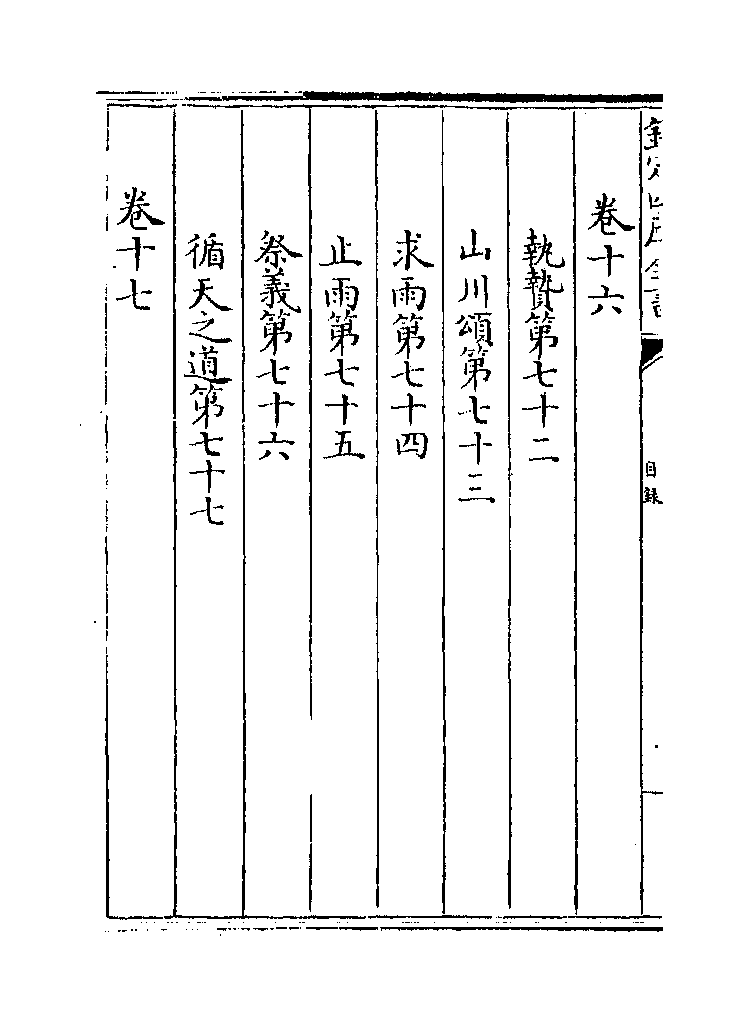 欽定四庫全書
目錄
卷十六
執贄第七十二
山川頌第七十三
求雨第七十四
止雨第七十五
祭義第七十六
循天之道第七十七
卷十七